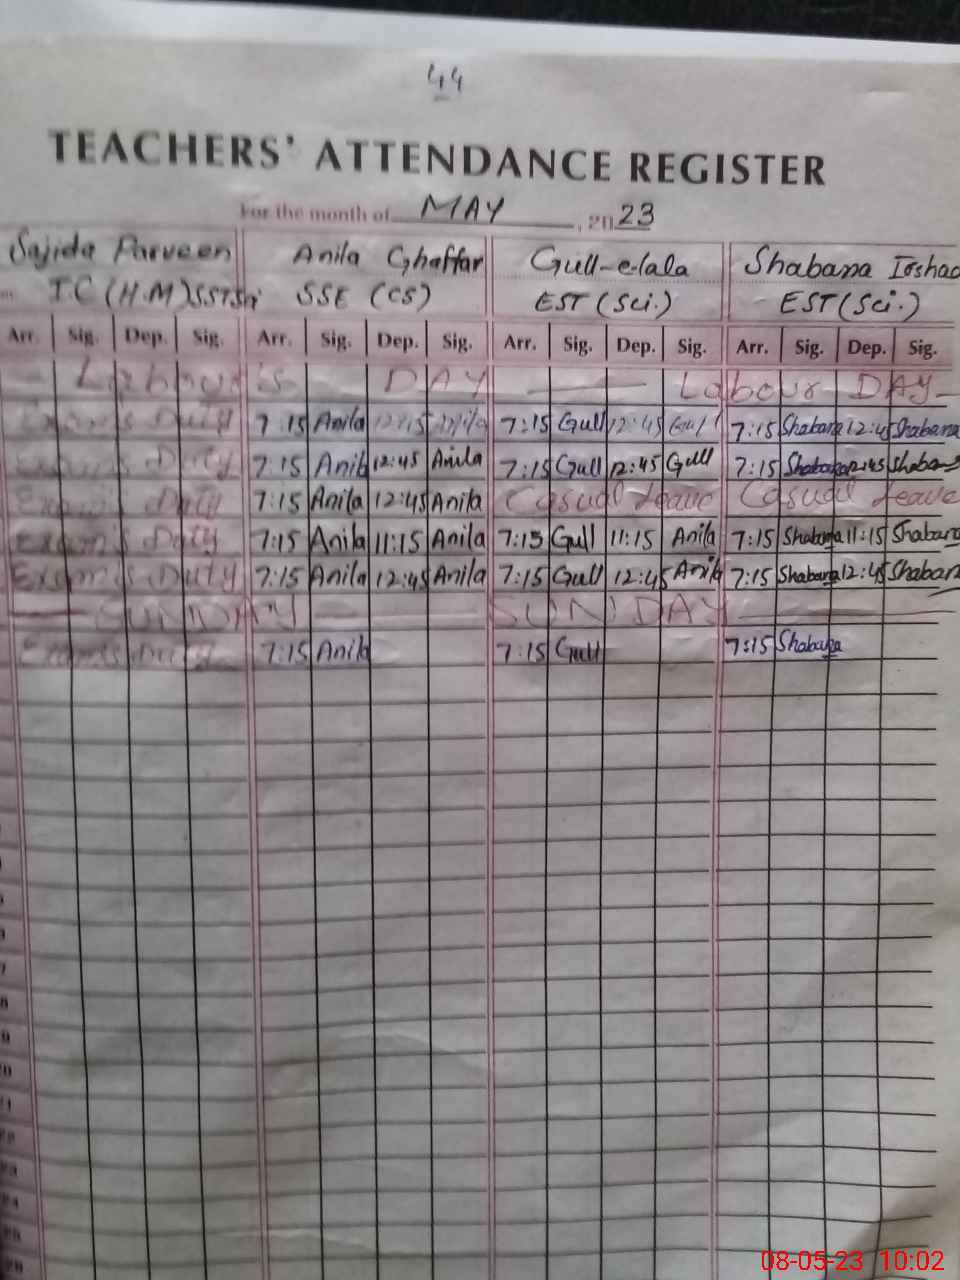 44
TEACHERS' ATTENDANCE REGISTER
For the month of MAY, 2023
Sajida Parveen Anila Ghaffar Gull-e-lala Shabana Irshad
I.C (H.M) SSTSci SSE (CS) EST (Sci.) EST (Sci.)
Arr. Sig. Dep. Sig. Arr. Sig. Dep. Sig. Arr. Sig. Dep. Sig. Arr. Sig. Dep. Sig.
Labour's DAY Labour DAY
Exams Duty 7:15 Anila 12:45 Anila 7:15 Gull 12:45 Gull 7:15 Shabana 12:45 Shabana
Exams Duty 7:15 Anila 12:45 Anila 7:15 Gull 12:45 Gull 7:15 Shabana 12:45 Shabana
Exams Duty 7:15 Anila 12:45 Anila Casual Leave Casual Leave
Exams Duty 7:15 Anila 11:15 Anila 7:15 Gull 11:15 Anila 7:15 Shabana 11:15 Shabana
Exams Duty 7:15 Anila 12:45 Anila 7:15 Gull 12:45 Anila 7:15 Shabana 12:45 Shabana
SUNDAY SUNDAY
Exams Duty 7:15 Anila 7:15 Gull 7:15 Shabana
08-05-23 10:02